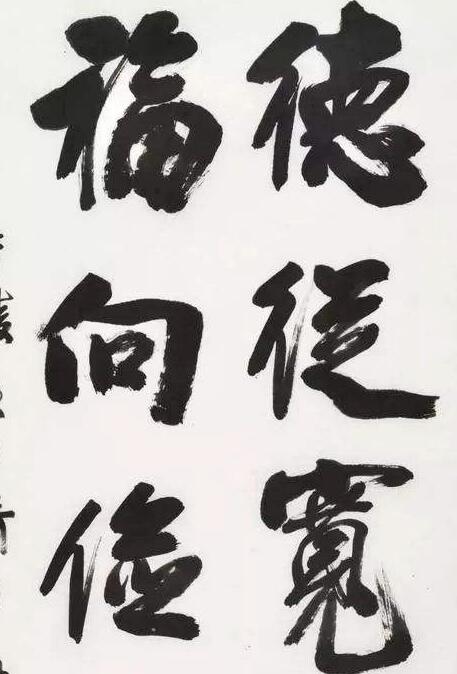 德從寬
福向儉